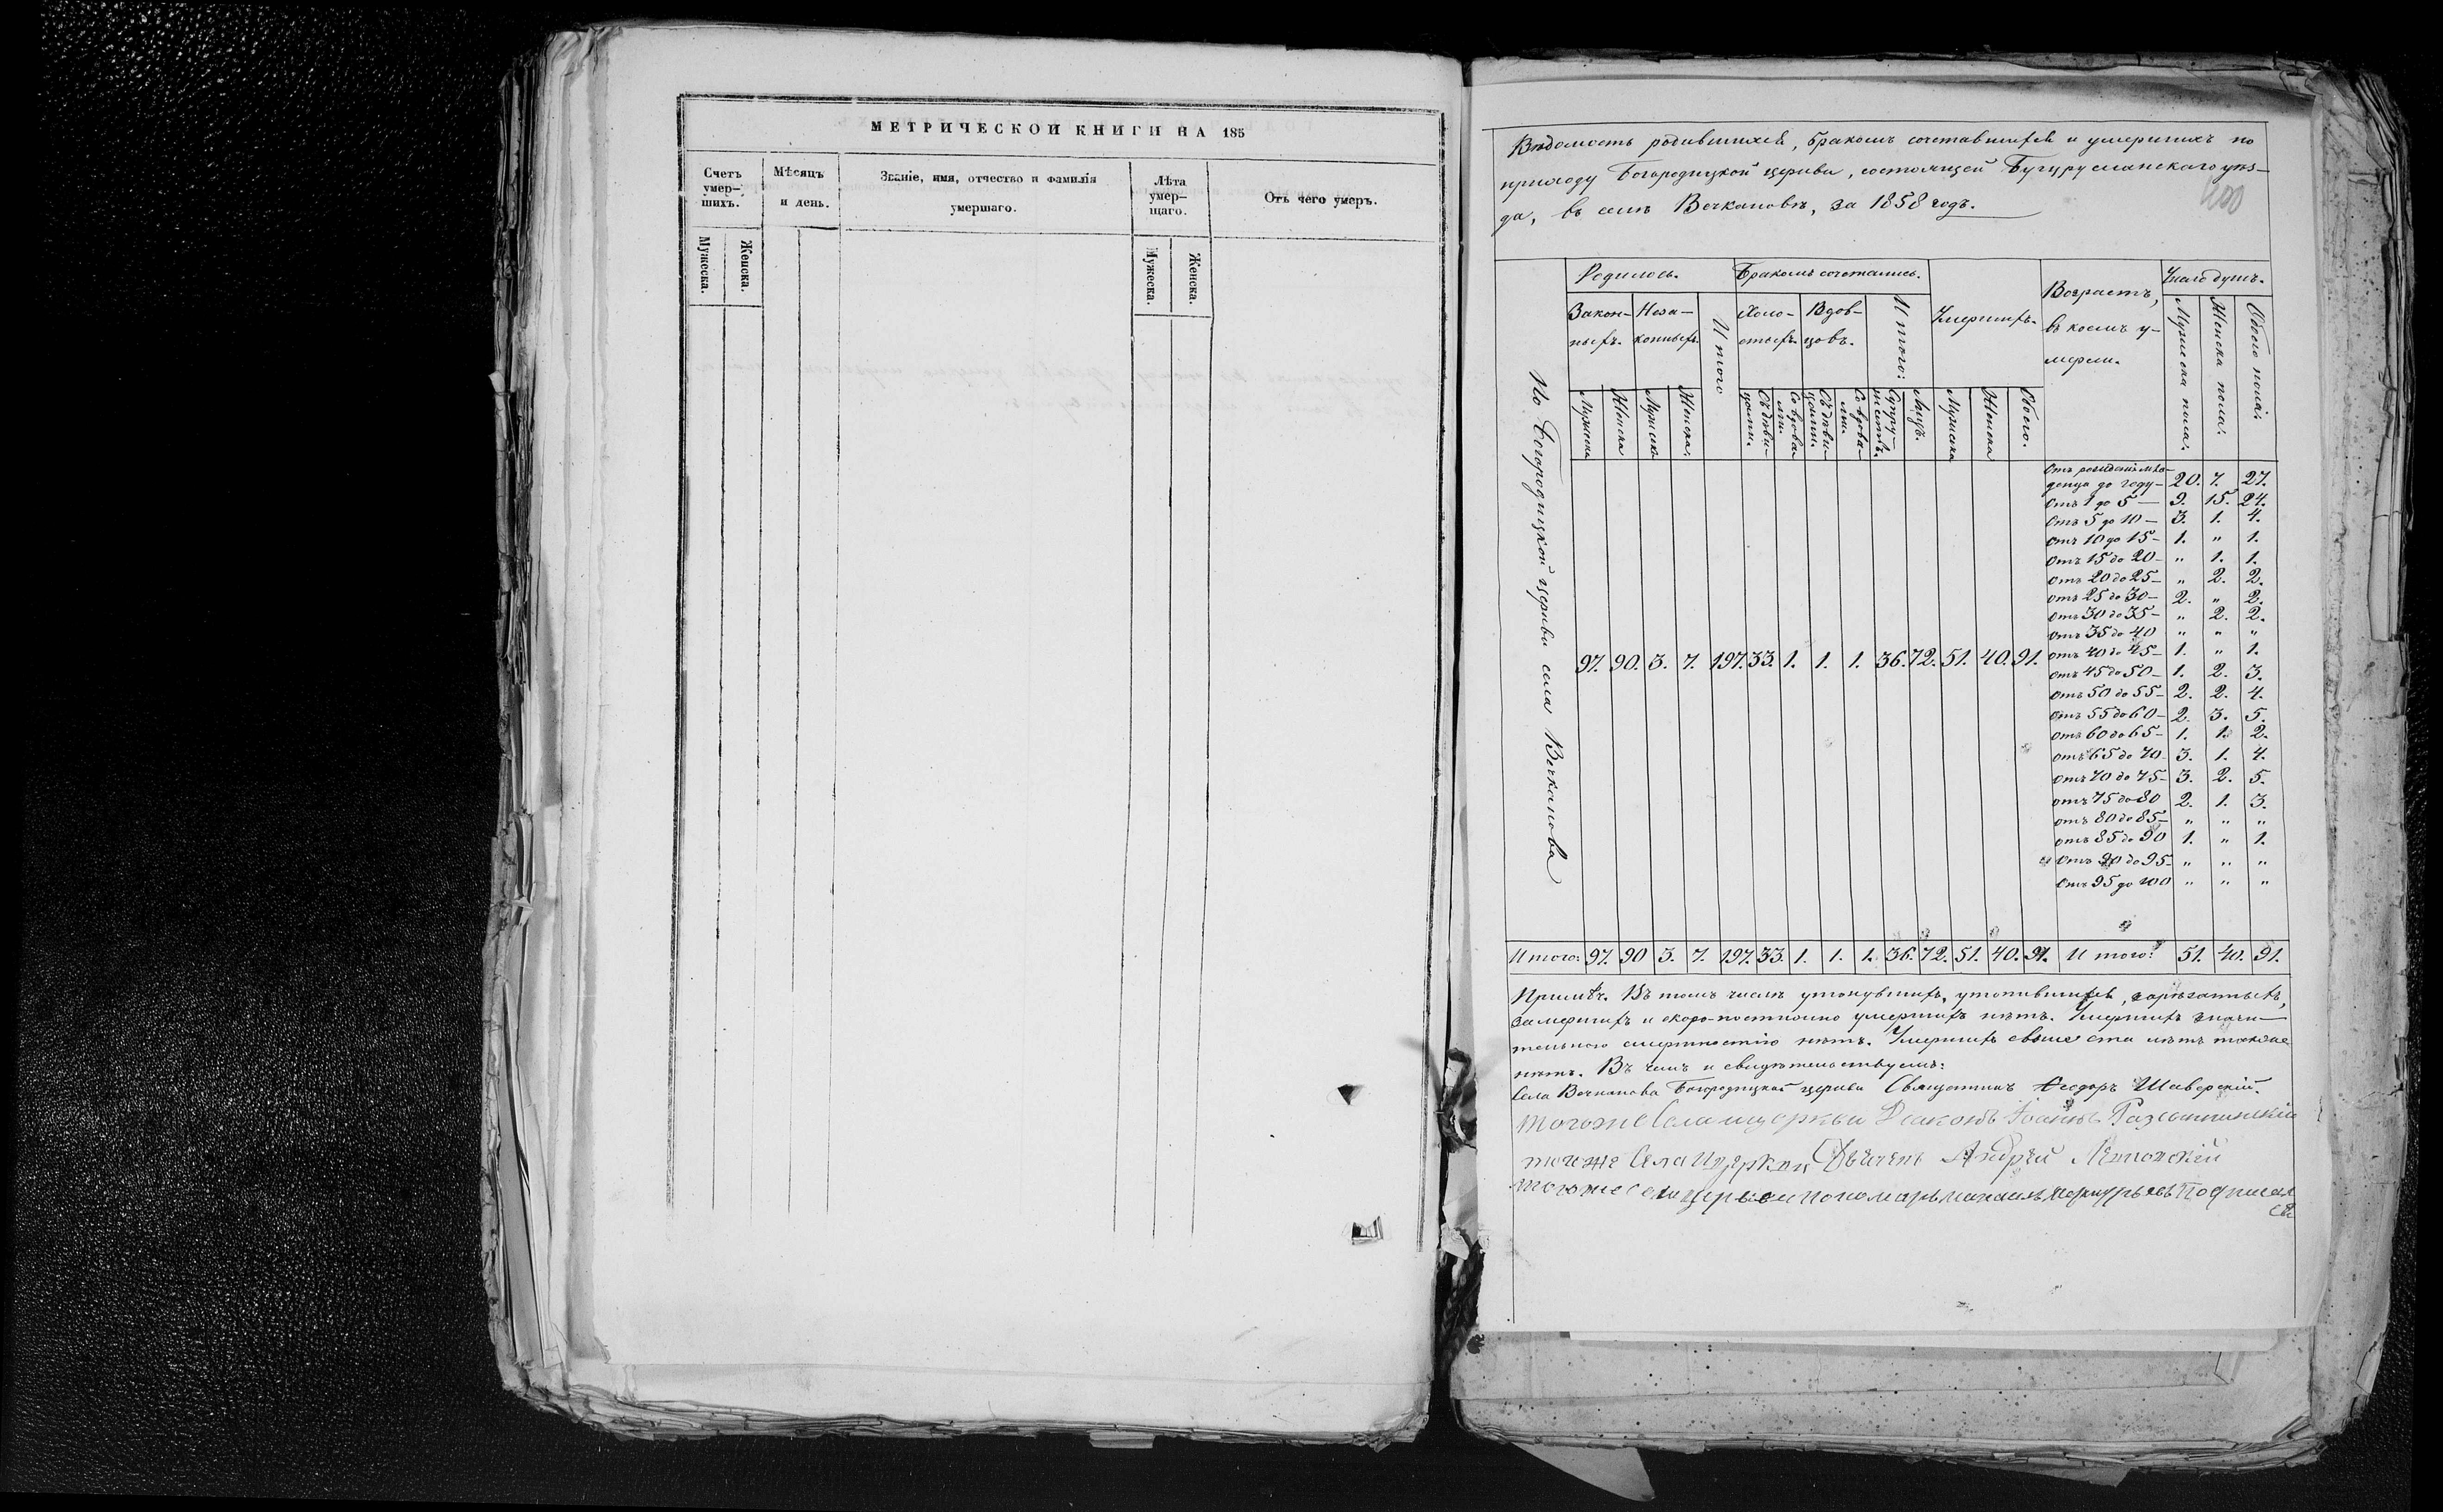 МЕТРИЧЕСКОЙ КНИГИ НА 185
Счетъ умер-шихъ.
Мѣсяцъ и день.
Званіе, имя, отчество и фамилія умершаго.
Лѣта умер-шаго.
Отъ чего умеръ.
Мужеска.
Женска.
Мужеска.
Женска.
Вѣдомость родившихся, бракомъ сочетавшихся и умершихъ по
приходу Богородицкой церкви, состоящей Бугурусланскаго уѣз-
да, въ селѣ Вечкановѣ, за 1858 годъ.
400
Родилось.
Бракомъ сочетались.
Умершихъ.
Возрастъ, въ коемъ у-мерли.
Число душъ.
Закон-ныхъ.
Неза-конныхъ.
Итого
Холо-стыхъ.
Вдов-цовъ.
Итого:
Мужеска пола.
Женска пола.
Обоего пола.
Мужеска
Женска
Мужеска
Женска.
Съ дѣви-цами.
Со вдова-ми.
Съ дѣви-цами.
Со вдова-ми.
Супру-жествъ.
Лицъ.
Мужеска
Женска
Обоего.
По Богородицкой церкви села Вечканова
97. 90. 3. 7. 197. 33. 1. 1. 1. 36. 72. 51. 40. 91.
Отъ рожденія мла-
денца до году- 20. 7. 27.
Отъ 1 до 5 — 9. 15. 24.
Отъ 5 до 10 — 3. 1. 4.
Отъ 10 до 15 - 1. " 1.
Отъ 15 до 20 - " 1. 1.
Отъ 20 до 25 - " 2. 2.
Отъ 25 до 30 - 2. " 2.
Отъ 30 до 35 - " 2. 2.
Отъ 35 до 40 " " "
Отъ 40 до 45 - 1. " 1.
Отъ 45 до 50 - 1. 2. 3.
Отъ 50 до 55 - 2. 2. 4.
Отъ 55 до 60 - 2. 3. 5.
Отъ 60 до 65 - 1. 1. 2.
Отъ 65 до 70 3. 1. 4.
Отъ 70 до 75 - 3. 2. 5.
Отъ 75 до 80 2. 1. 3.
Отъ 80 до 85 - " " "
Отъ 85 до 90 1. " 1.
Отъ 90 до 95 - " " "
Отъ 95 до 100 " " "
Итого: 97. 90 3. 7. 197. 33. 1. 1. 1. 36. 72. 51. 40. 91. Итого: 51. 40. 91.
Примѣч. Въ томъ числѣ утонувшихъ, утопившихся, зарѣзанныхъ,
замершихъ и скоро-постижно умершихъ нѣтъ. Умершихъ значи-
тельного смертностію нѣтъ. Умершихъ свыше ста лѣтъ также
нѣтъ. Въ чемъ и свидѣтельствуемъ:
Села Вечканова Богородицкой церкви Священникъ Ѳеодоръ Шаверскій.
Тогоже Села церкви Діаконъ Іоаннъ
тогоже Села Церкви Дьячекъ Андрей
тогоже Села церкви пономарь михаилъ Меркурьевъ Подписал
ся